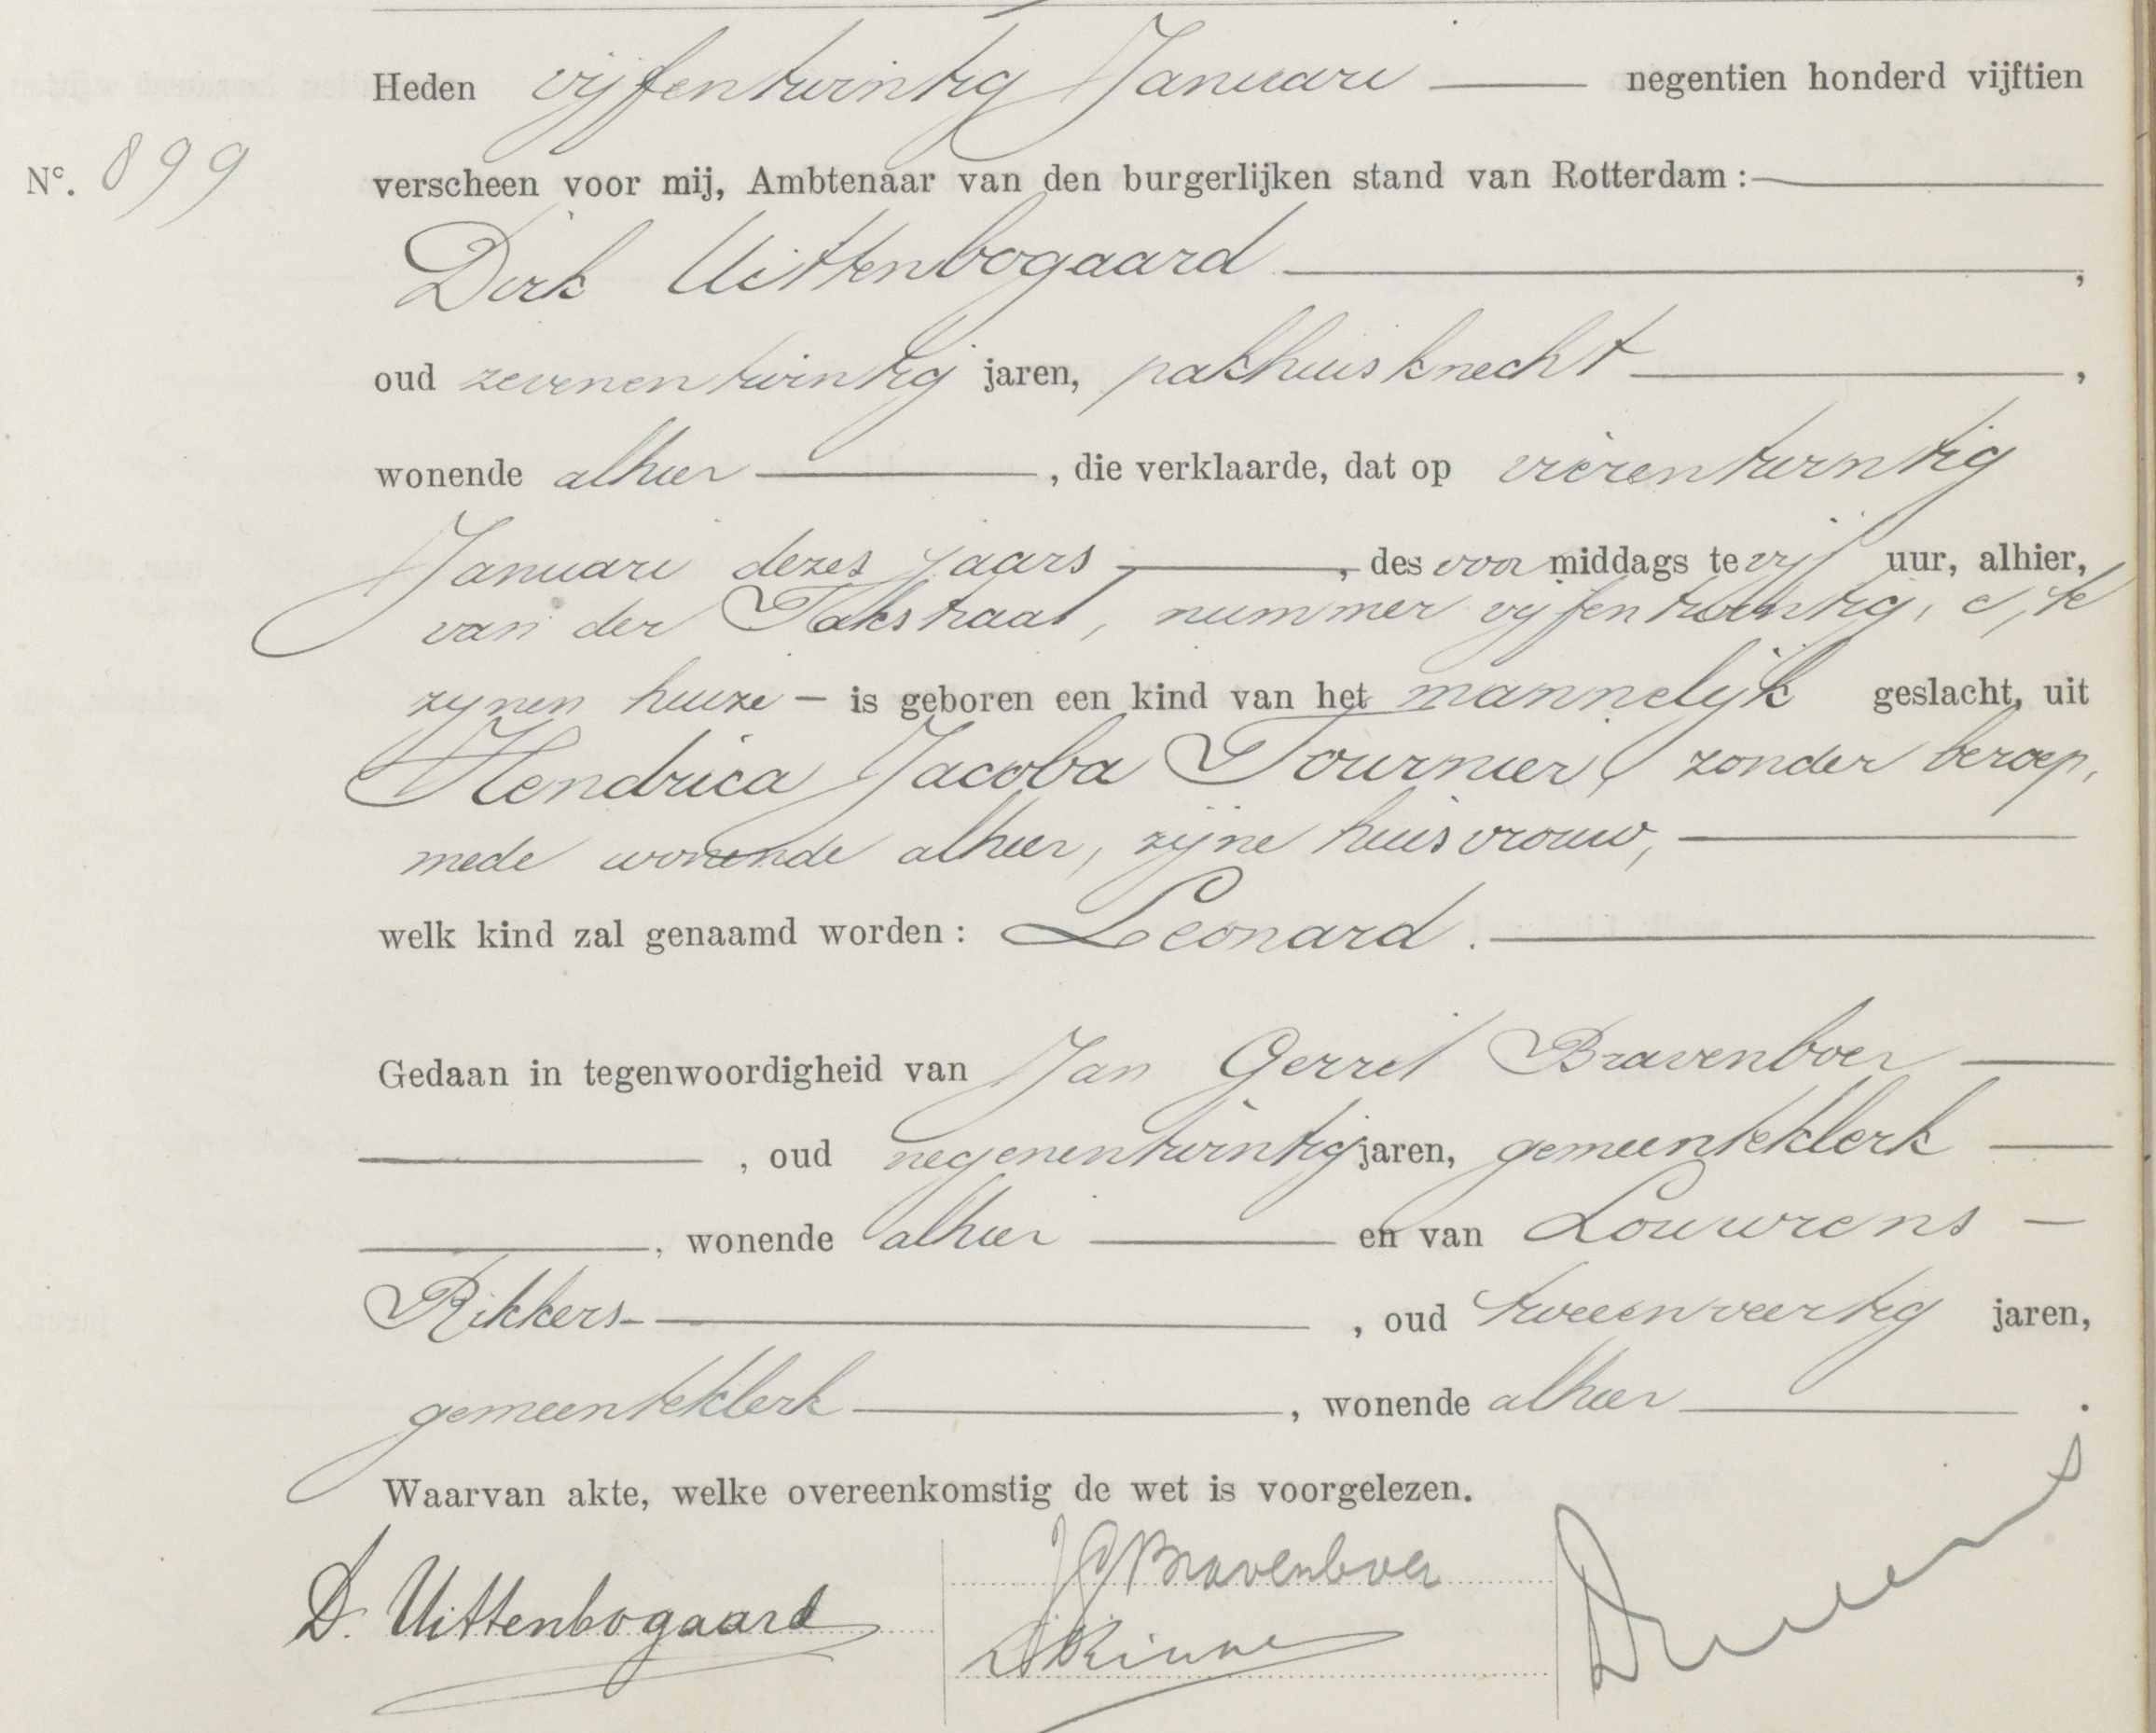 Heden vijfentwintig Januari negentien honderd vijftien
No. 899
verscheen voor mij, Ambtenaar van den burgerlijken stand van Rotterdam :
Dirk Uittenbogaard ,
oud zevenentwintig jaren, pakhuisknecht ,
wonende alhier , die verklaarde, dat op vierentwintig
Januari dezes jaars , des voor middags te vijf uur, alhier,
van der Takstraat, nummer vijfentwintig, c, te
zijnen huize – is geboren een kind van het mannelijk geslacht, uit
Hendrica Jacoba Fournier, zonder beroep,
mede wonende alhier, zijne huisvrouw,
welk kind zal genaamd worden : Leonard.
Gedaan in tegenwoordigheid van Jan Gerrit Bravenboer
, oud negenentwintig jaren, gemeenteklerk
, wonende alhier en van Louwrens –
Rikkers , oud tweeenveertig jaren,
gemeenteklerk , wonende alhier .
Waarvan akte, welke overeenkomstig de wet is voorgelezen.
D. Uittenbogaard
JGBravenboer